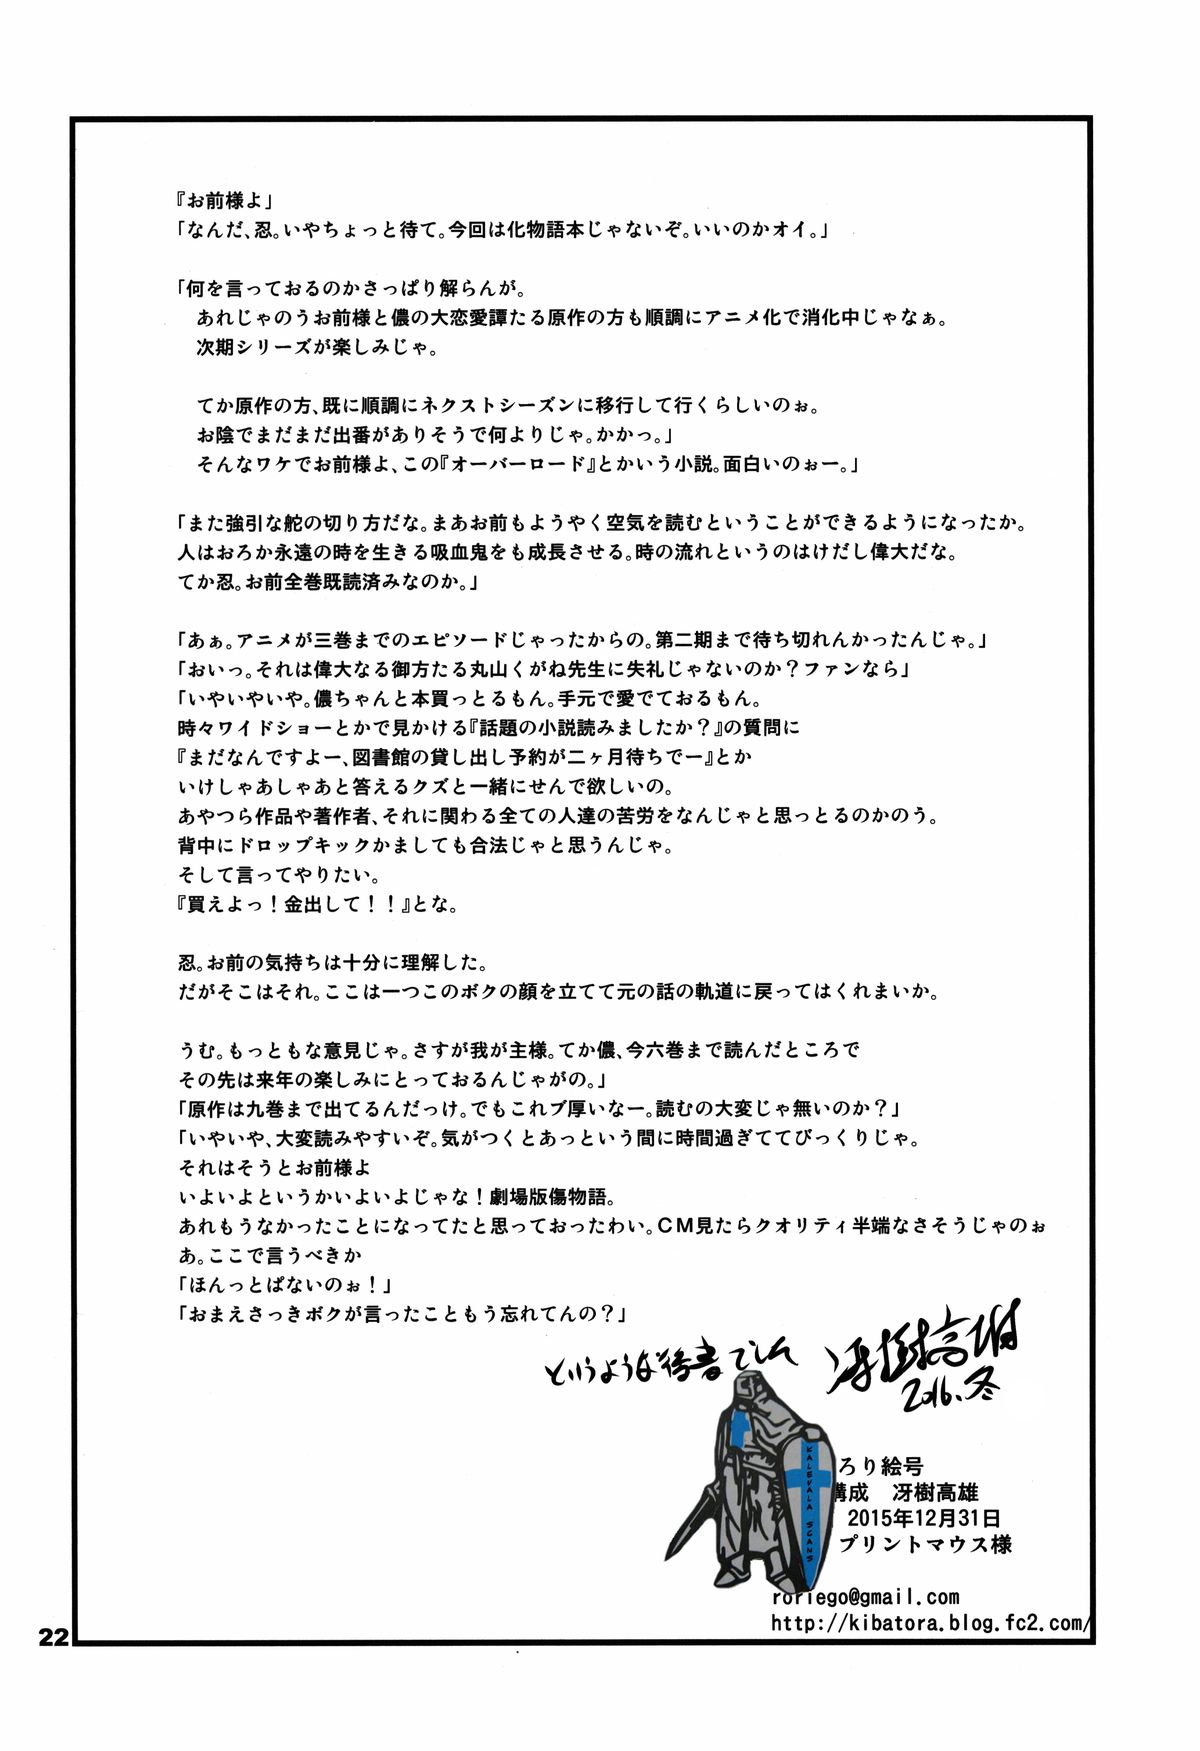 『お前様よ」
「なんだ、忍。いやちょっと待て。今回は化物語本じゃないぞ。いいのかオイ。」
「何を言っておるのかさっぱり解らんが。
あれじゃのうお前様と儂の大恋愛譚たる原作の方も順調にアニメ化で消化中じゃなぁ。
次期シリーズが楽しみじゃ。
てか原作の方、既に順調にネクストシーズンに移行して行くらしいのぉ。
お陰でまだまだ出番がありそうで何よりじゃ。かかっ。」
そんなワケでお前様よ、この『オーバーロード』とかいう小説。面白いのぉー。」
「また強引な舵の切り方だな。まあお前もようやく空気を読むということができるようになったか。
人はおろか永遠の時を生きる吸血鬼をも成長させる。時の流れというのはけだし偉大だな。
てか忍。お前全巻既読済みなのか。」
「あぁ。アニメが三巻までのエピソードじゃったからの。第二期まで待ち切れんかったんじゃ。」
「おいっ。それは偉大なる御方たる丸山くがね先生に失礼じゃないのか？ファンなら」
「いやいやいや。儂ちゃんと本買っとるもん。手元で愛でておるもん。
時々ワイドショーとかで見かける『話題の小説読みましたか？』の質問に
『まだなんですよー、図書館の貸し出し予約が二ヶ月待ちでー』とか
いけしゃあしゃあと答えるクズと一緒にせんで欲しいの。
あやつら作品や著作者、それに関わる全ての人達の苦労をなんじゃと思っとるのかのう。
背中にドロップキックかましても合法じゃと思うんじゃ。
そして言ってやりたい。
『買えよっ！金出して！！』とな。
忍。お前の気持ちは十分に理解した。
だがそこはそれ。ここは一つこのボクの顔を立てて元の話の軌道に戻ってはくれまいか。
うむ。もっともな意見じゃ。さすが我が主様。てか儂、今六巻まで読んだところで
その先は来年の楽しみにとっておるんじゃがの。」
「原作は九巻まで出てるんだっけ。でもこれブ厚いなー。読むの大変じゃ無いのか？」
「いやいや、大変読みやすいぞ。気がつくとあっという間に時間過ぎててびっくりじゃ。
それはそうとお前様よ
いよいよというかいよいよじゃな！劇場版傷物語。
あれもうなかったことになってたと思っておったわい。CM見たらクオリティ半端なさそうじゃのぉ
あ。ここで言うべきか
「ほんっとぱないのぉ！」
「おまえさっきボクが言ったこともう忘れてんの？」
というような後書でした
冴樹高雄
2016.冬
KALEVALA SCANS
ろり絵号
構成　冴樹高雄
2015年12月31日
プリントマウス様
roriego@gmail.com
http://kibatora.blog.fc2.com/
22